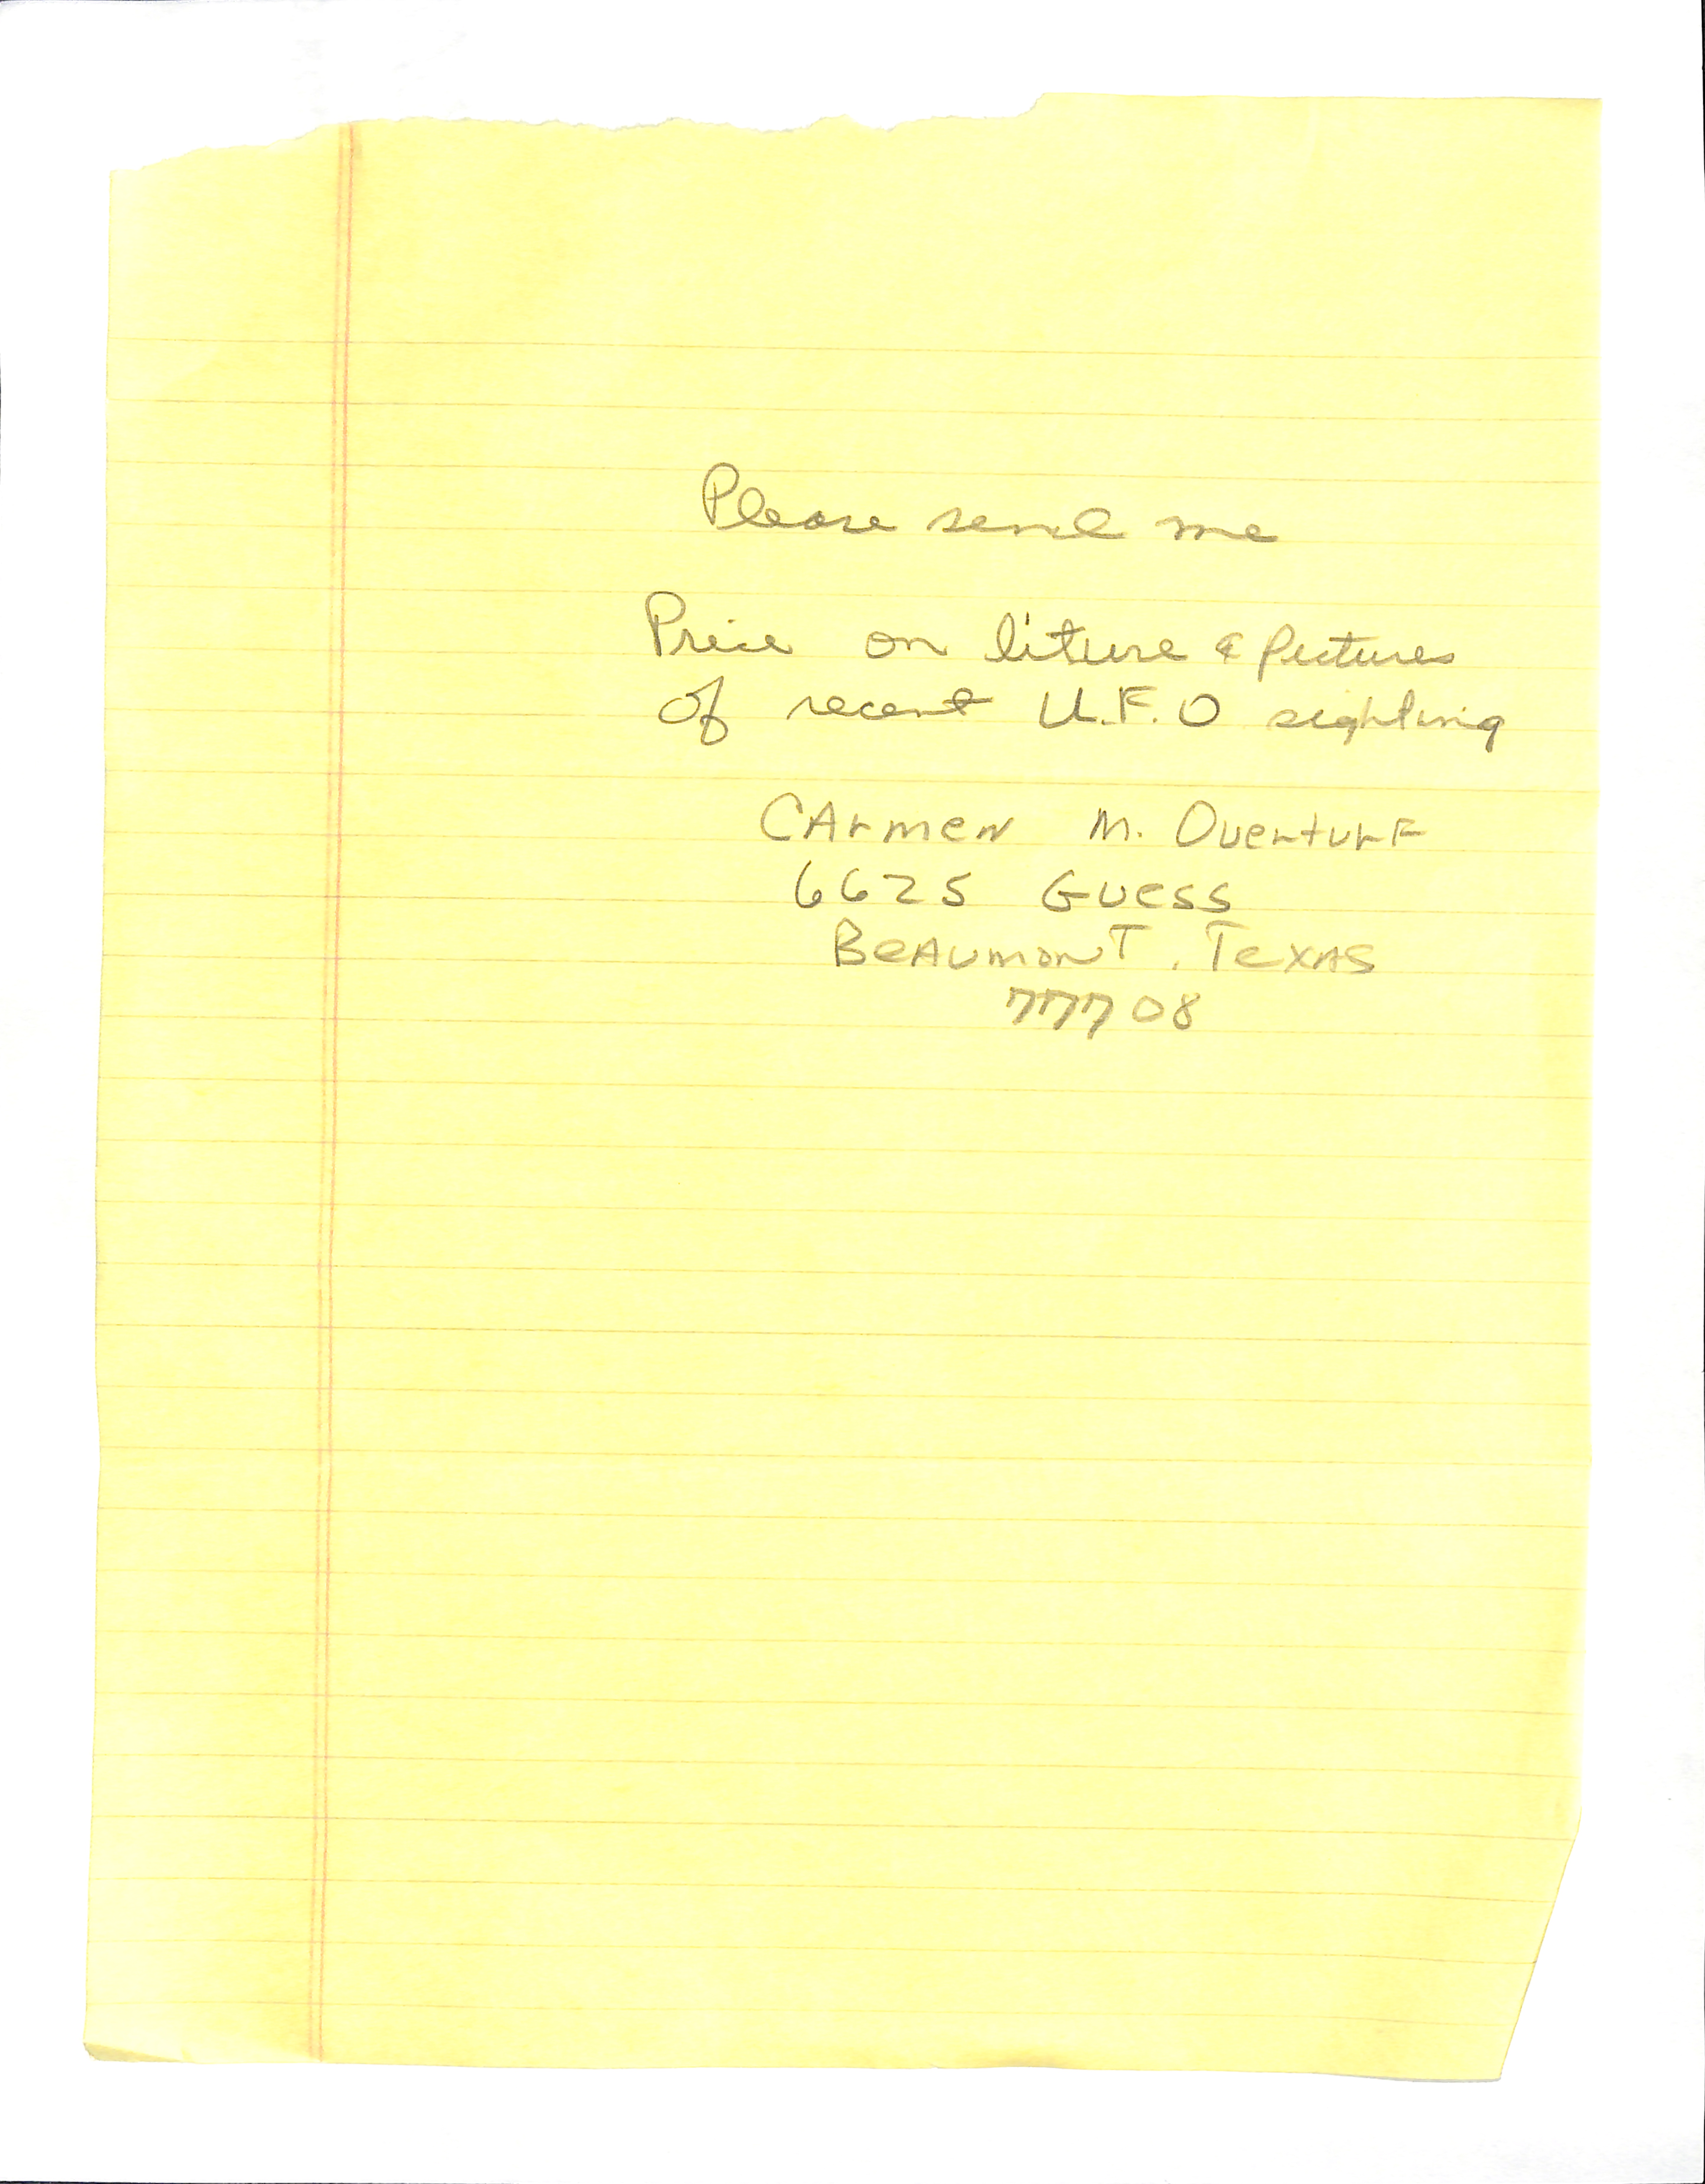 Please send me
Price on liture & pictures
of recent U.F.O sighting
CArmen M. Overturf
6625 Guess
BeAumonT, TexAS
77708